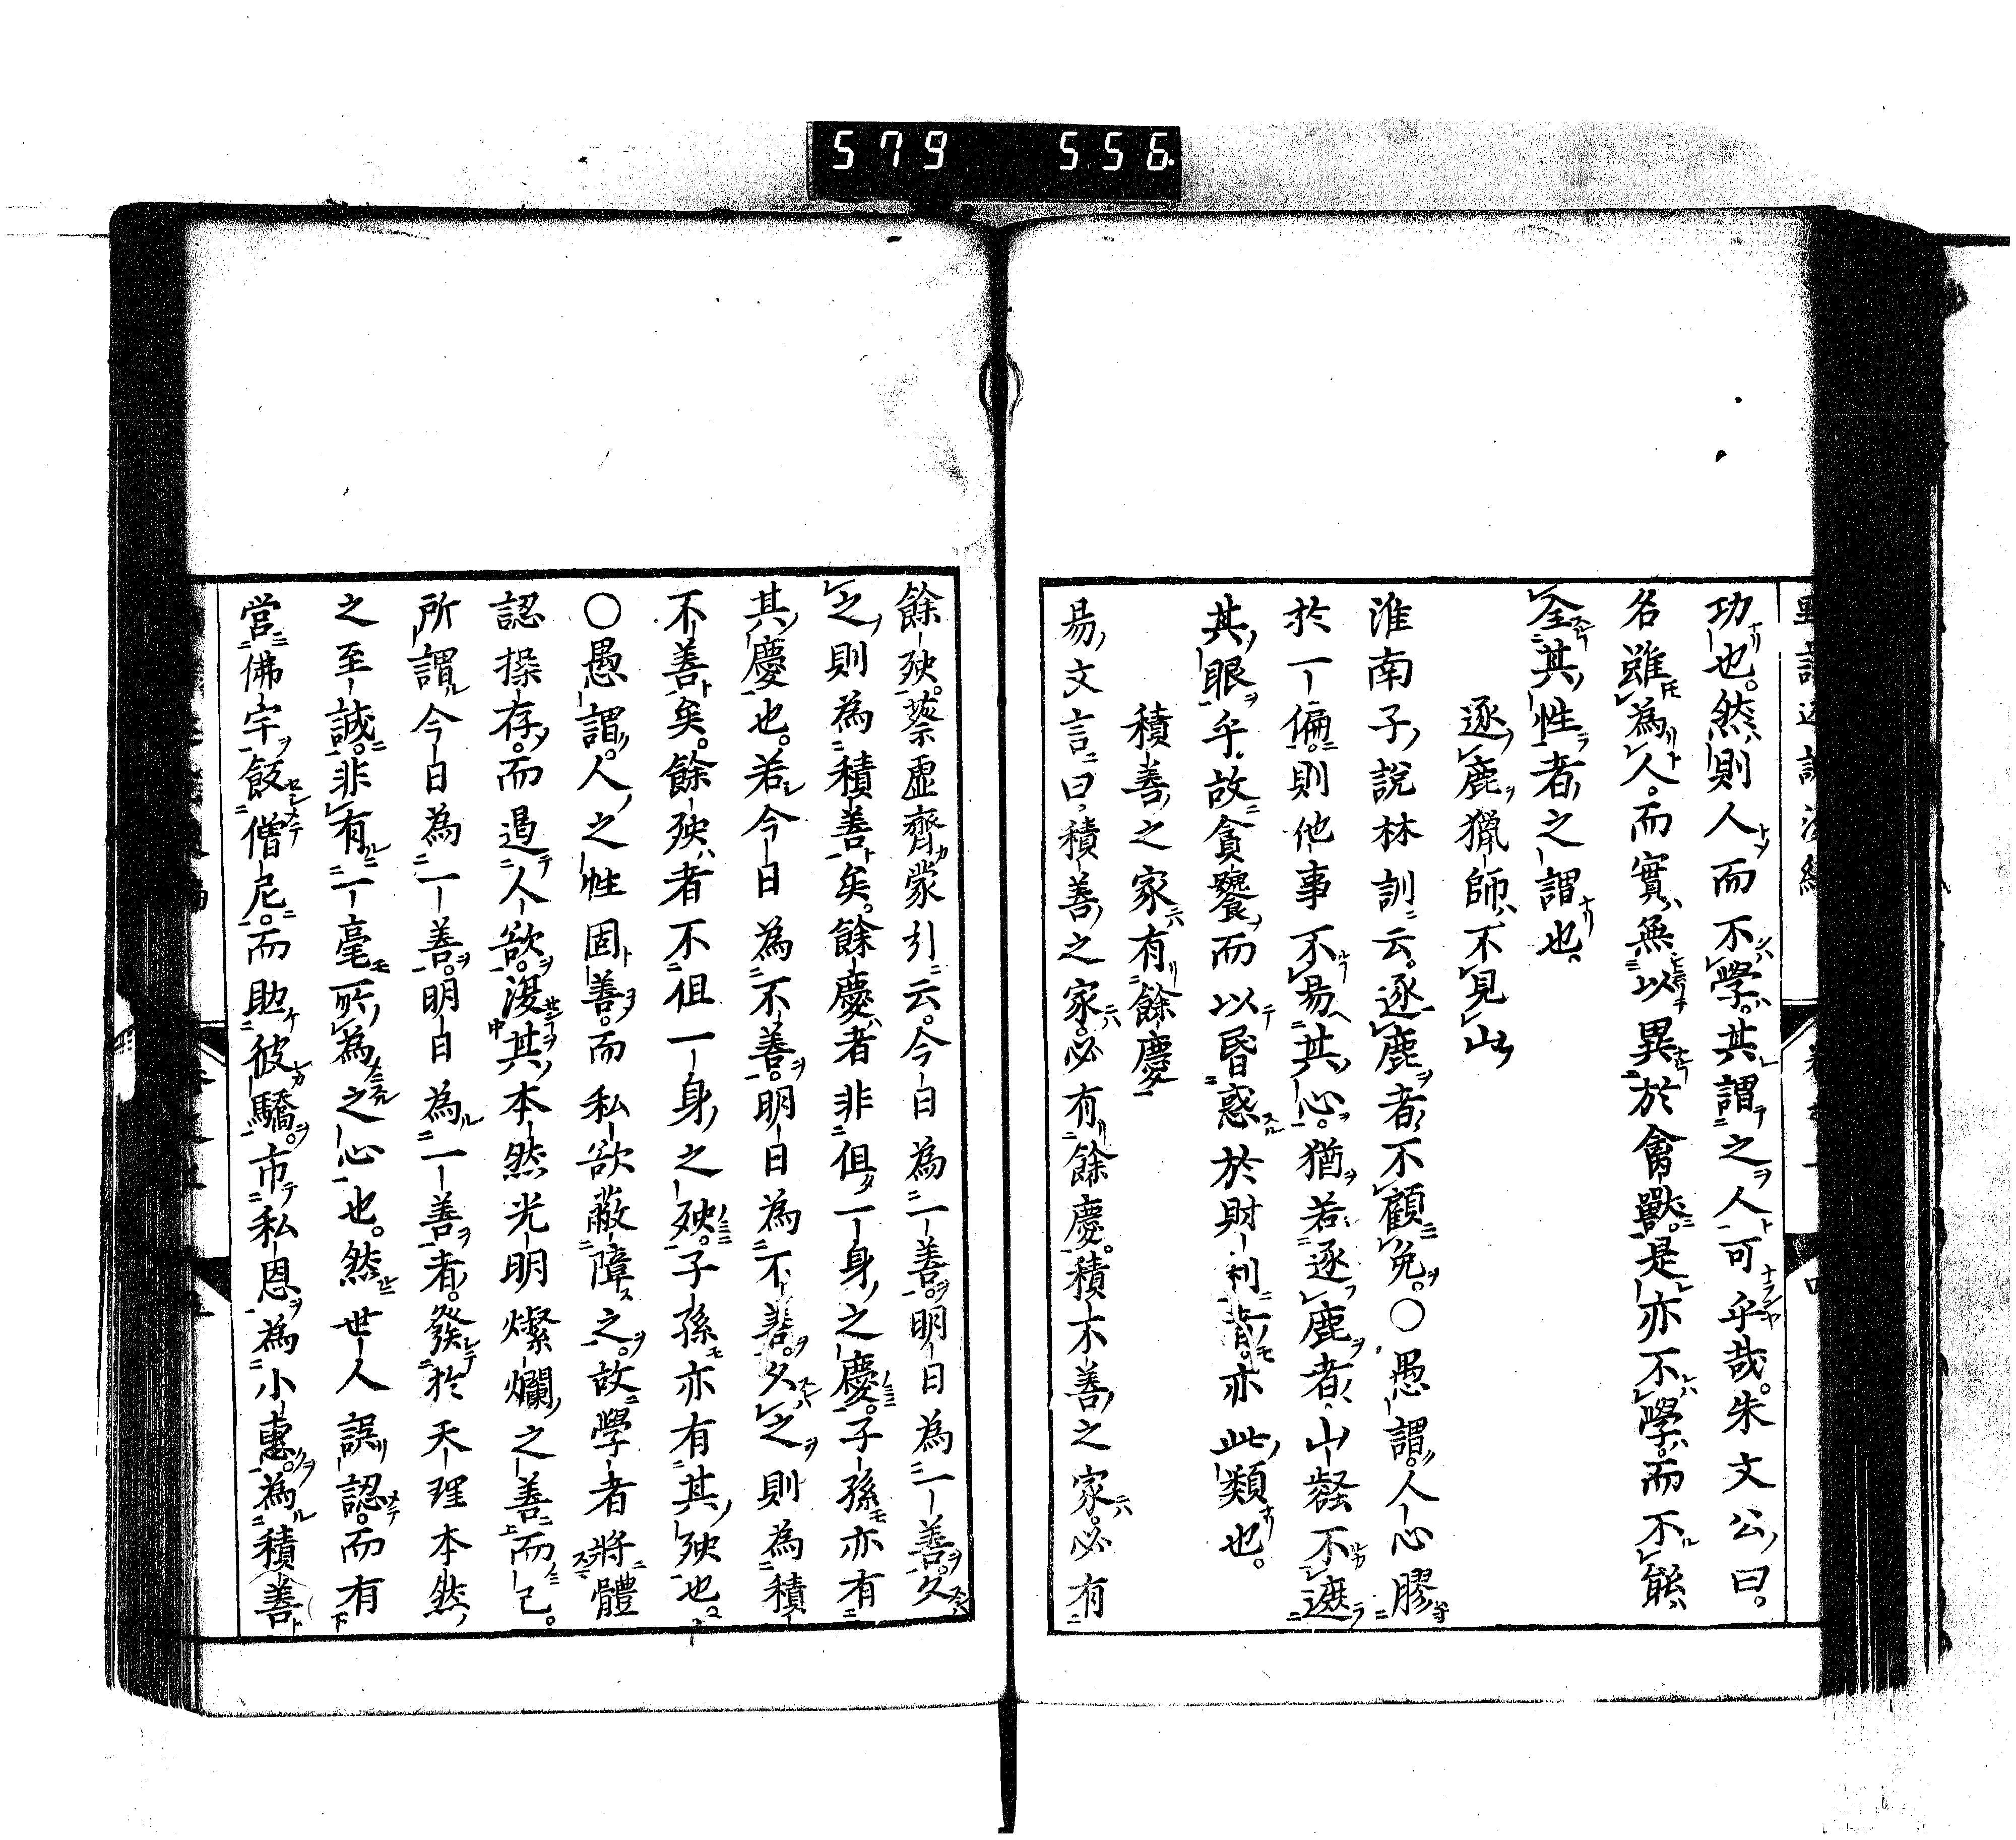 579 556
功也。然則人而不學。其謂之人可乎哉。朱文公曰。
名雖為人。而實無以異於禽獸。是亦不學。而不能
全其性者之謂也。
逐鹿獵師不見山
淮南子說林訓云。逐鹿者不顧兔。〇愚謂。人心膠
於一偏。則他事不易其心。猶若逐鹿者山谿不遮
其眼乎。故貪饕而以昏惑於財利者。亦此類也。
積善之家有餘慶
易文言曰。積善之家。必有餘慶。積不善之家。必有
餘殃。蔡虛齋蒙引云。今日為一善。明日為一善。久
之則為積善矣。餘慶者非但一身之慶。子孫亦有
其慶也。若今日為不善。明日為不善。久之則為積
不善矣。餘殃者不徂一身之殃。子孫亦有其殃也。
〇愚謂。人之性固善。而私欲蔽障之。故學者將體
認操存。而遏人欲。復其本然光明燦爛之善而已。
所謂今日為一善。明日為一善者。發於天理本然
之至誠。非有一毫所為之心也。然世人誤認。而有
営佛宇飯僧尼。而助彼驕。市私恩為小惠。為積善